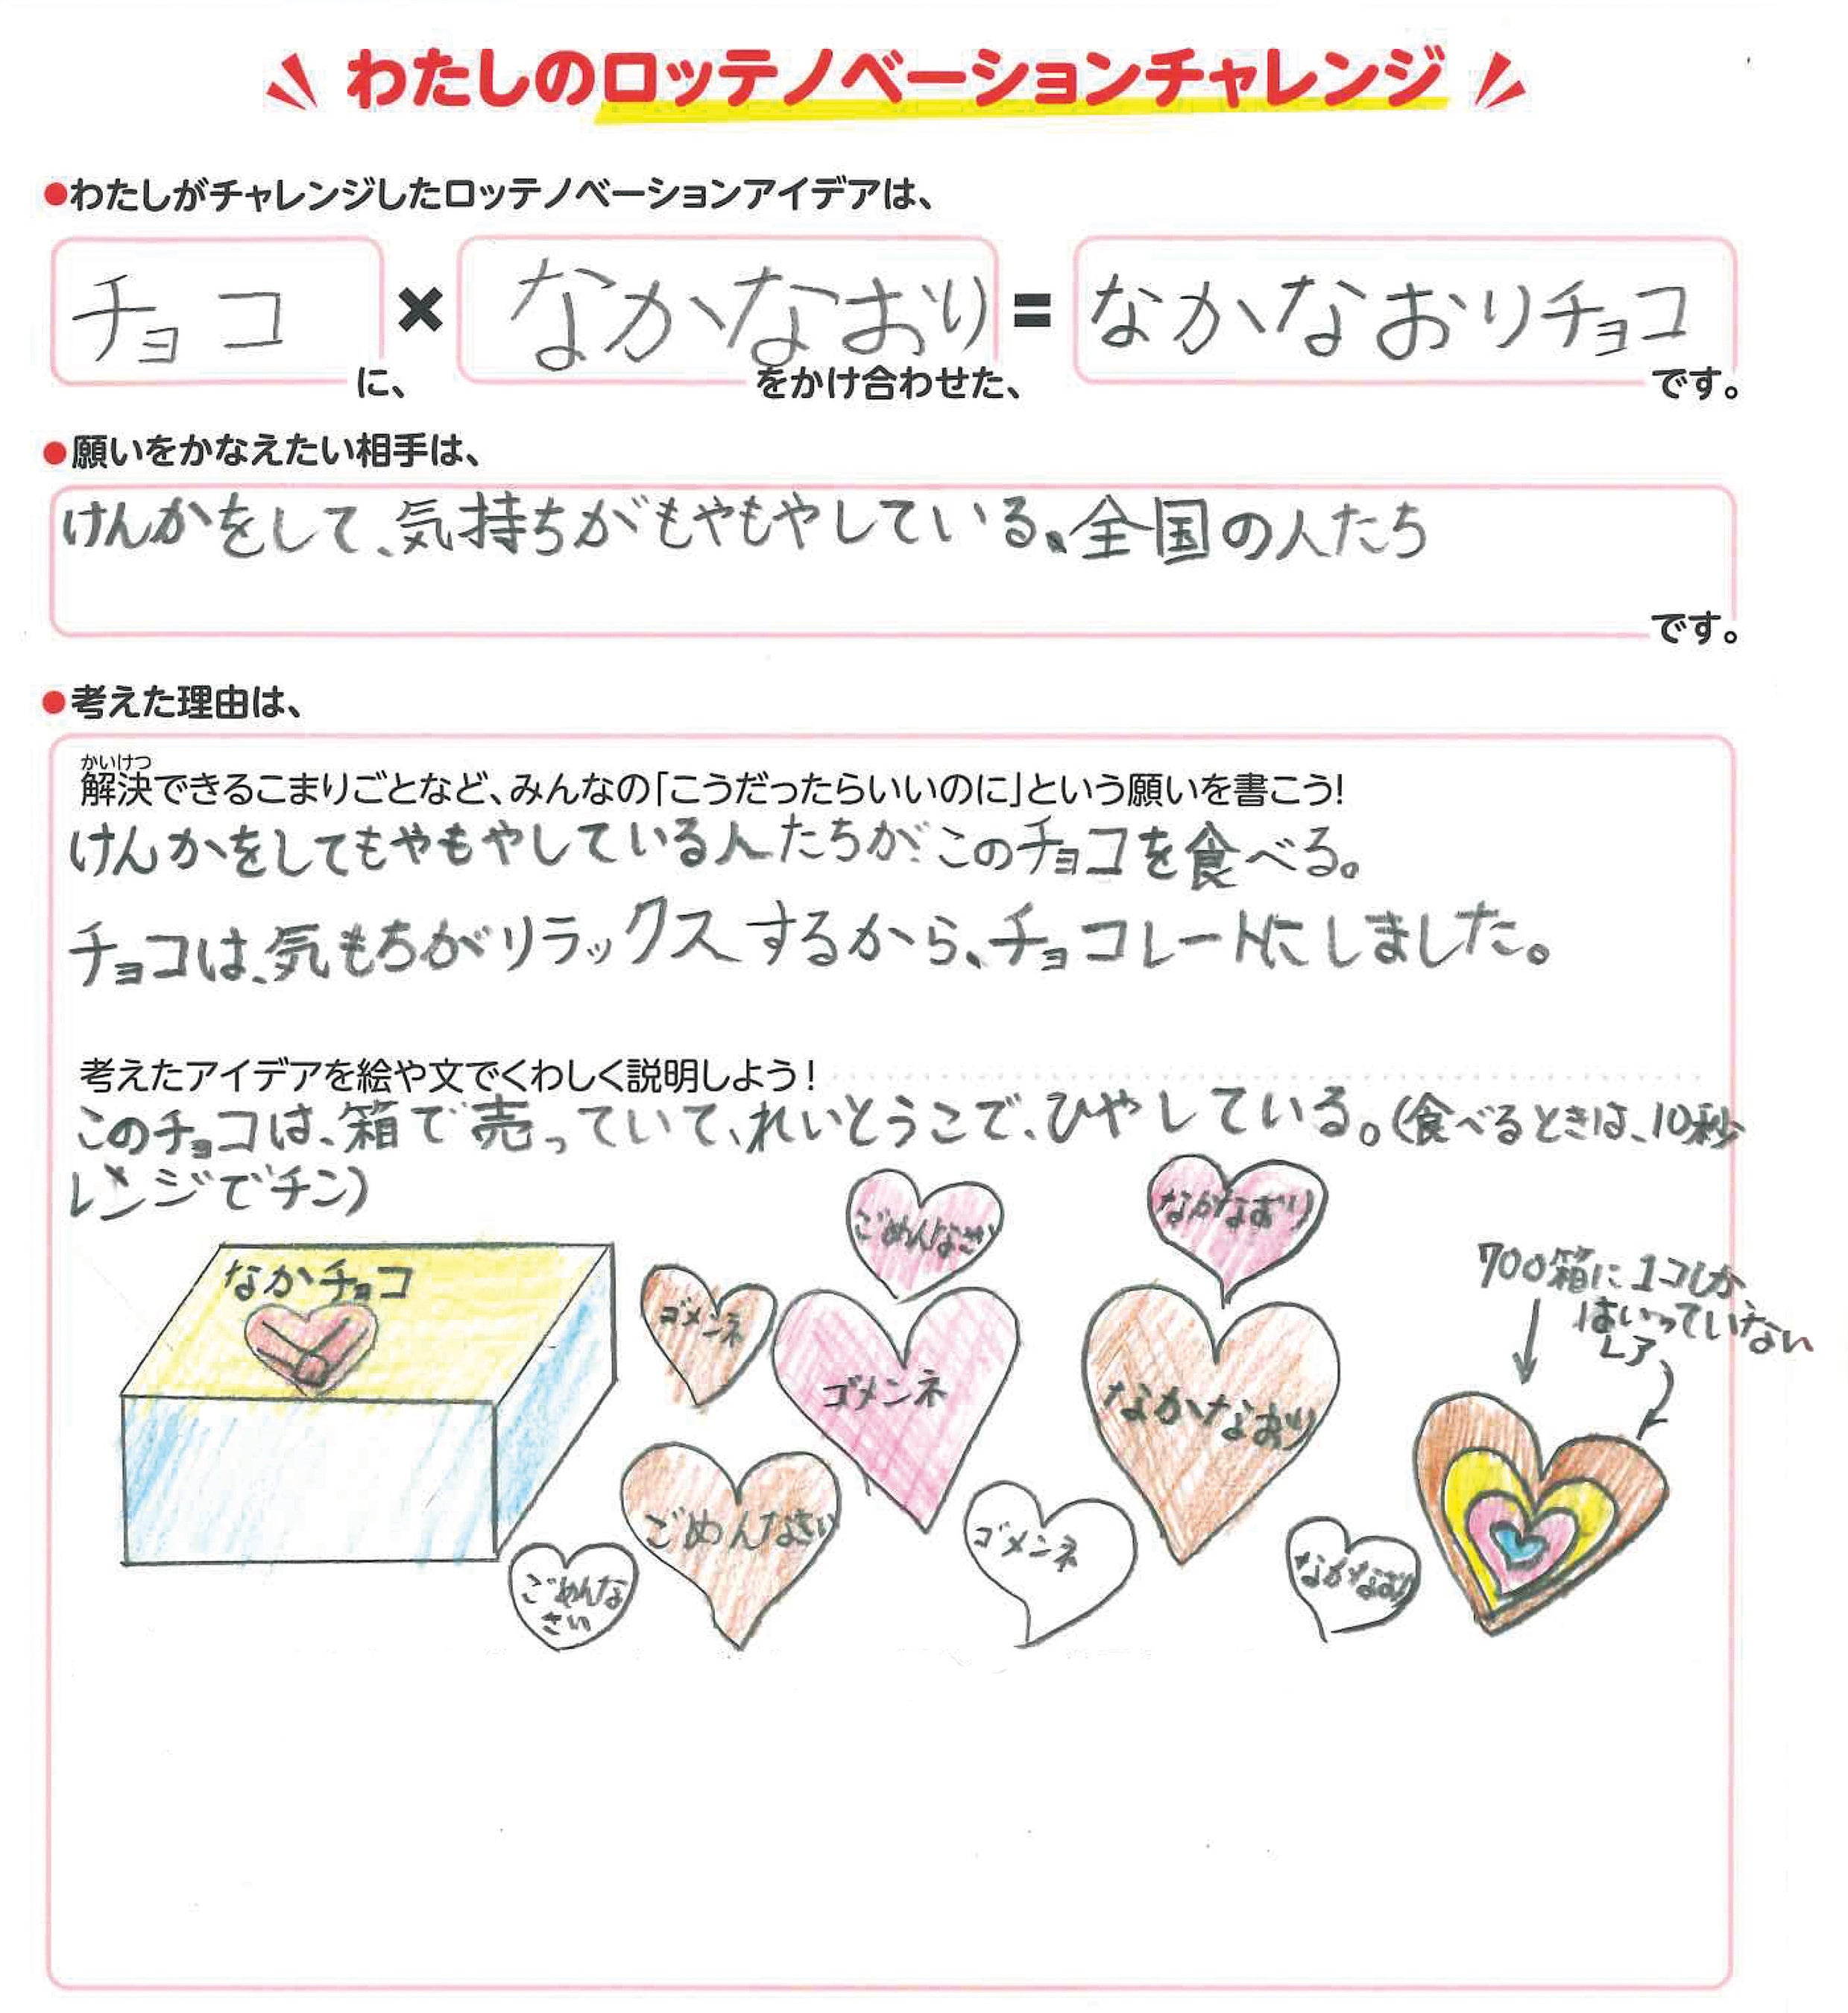 わたしのロッテノベーションチャレンジ
●わたしがチャレンジしたロッテノベーションアイデアは、
チョコ に、 × なかなおり をかけ合わせた、 = なかなおりチョコ です。
●願いをかなえたい相手は、
けんかをして、気持ちがもやもやしている、全国の人たち
です。
●考えた理由は、
かいけつ
解決できるこまりごとなど、みんなの「こうだったらいいのに」という願いを書こう!
けんかをしてもやもやしている人たちが、このチョコを食べる。
チョコは、気もちがリラックスするから、チョコレートにしました。
考えたアイデアを絵や文でくわしく説明しよう!
このチョコは、箱で売っていて、れいとうこで、ひやしている。(食べるときは、10秒
レンジでチン)
なかチョコ
ゴメンネ
ごめんなさい
ゴメンネ
なかなおり
なかなおり
700箱に1コしか
はいっていない
レア
ごめんなさい
ごめんな
さい
ゴメンネ
なかなおり